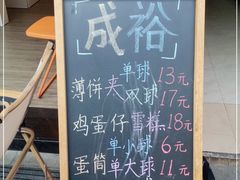 成裕
单球 13元
薄饼夹双球 17元
鸡蛋仔雪糕 18元
单小球 6元
蛋筒单大球 11元